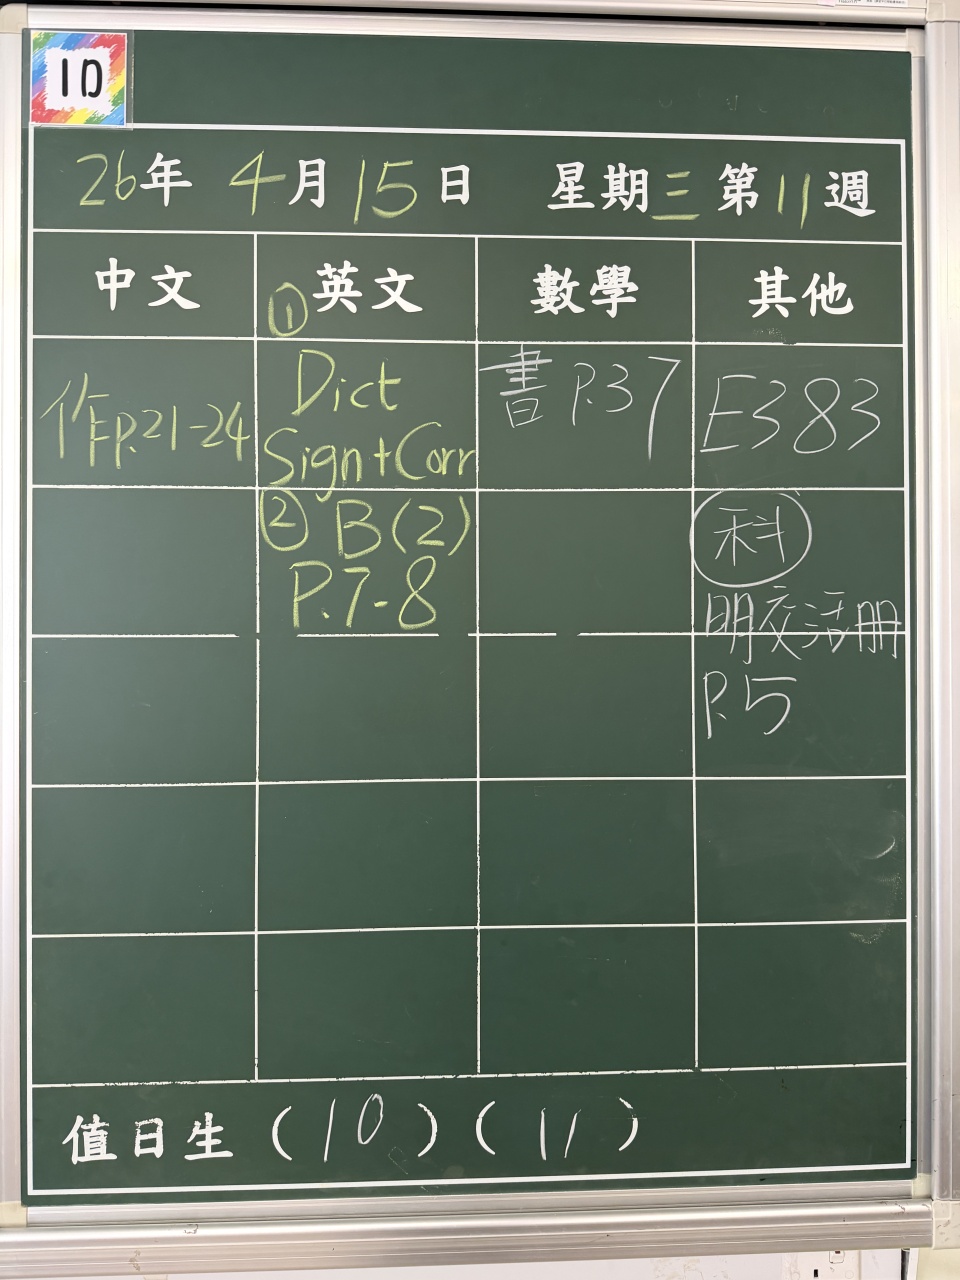 1D
26年 4月 15日 星期三 第11週
中文 ① 英文 數學 其他
作P.21-24
Dict
Sign+Corr
② B(2)
P.7-8
書 P.37
E383
科
明交活册
P.5
值日生 (10) (11)